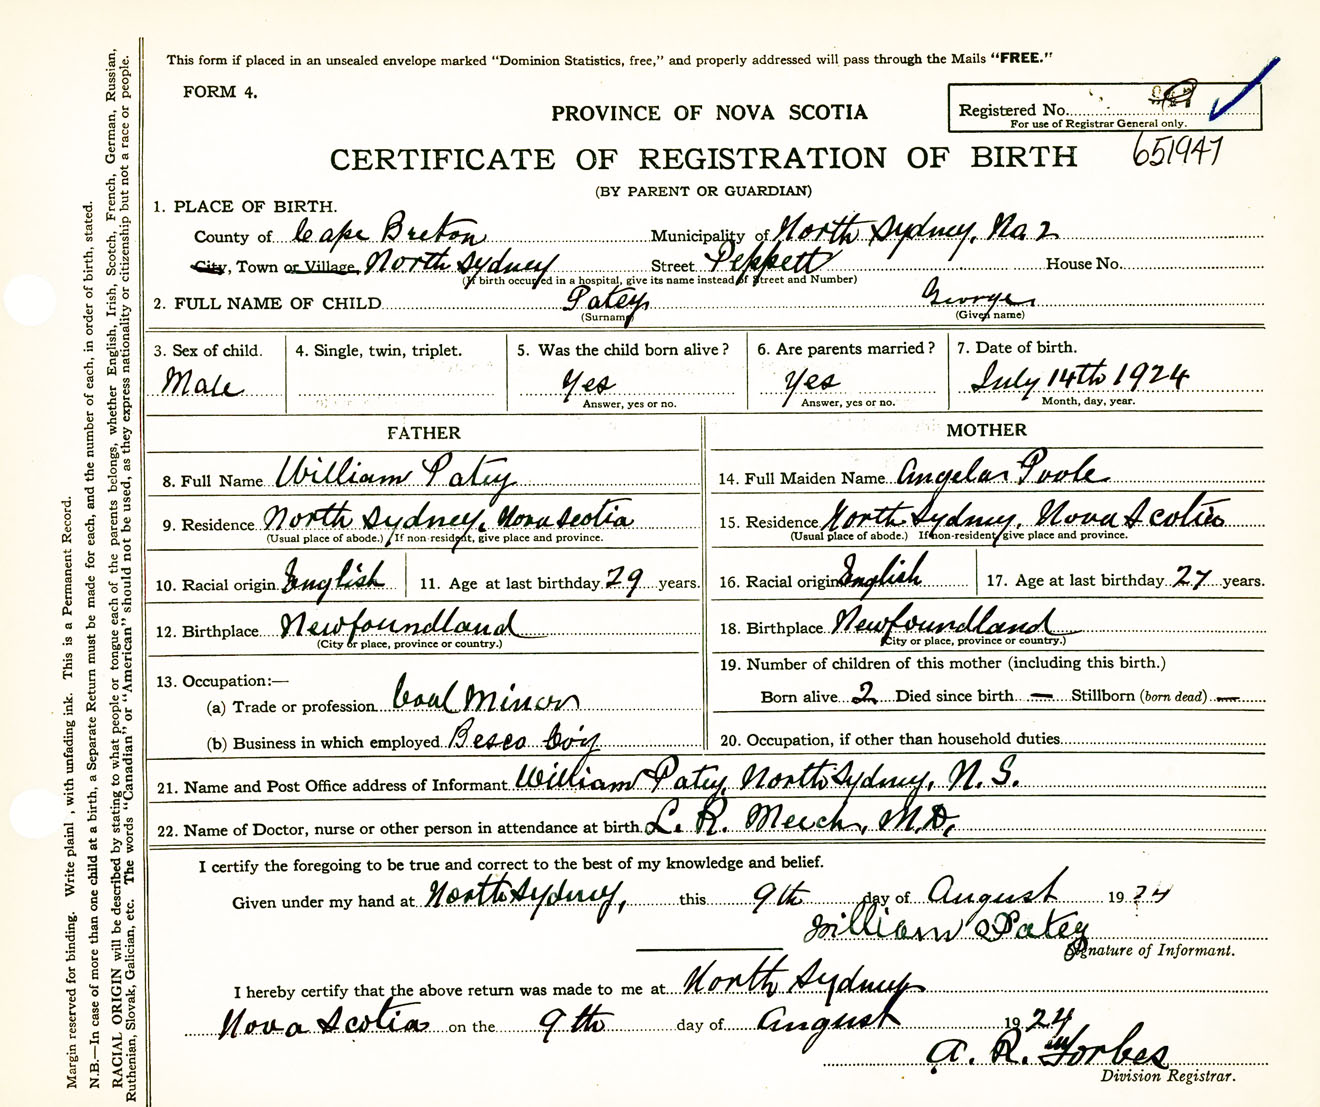 This form if placed in an unsealed envelope marked "Dominion Statistics, free," and properly addressed will pass through the Mails "FREE."
FORM 4.
PROVINCE OF NOVA SCOTIA
Registered No.
For use of Registrar General only.
651947
CERTIFICATE OF REGISTRATION OF BIRTH
(BY PARENT OR GUARDIAN)
1. PLACE OF BIRTH.
County of Cape Breton Municipality of North Sydney, No 2
City, Town or Village North Sydney Street Peppett House No.
(If birth occurred in a hospital, give its name instead of Street and Number)
2. FULL NAME OF CHILD Patey George
(Surname) (Given name)
3. Sex of child. 4. Single, twin, triplet. 5. Was the child born alive? 6. Are parents married? 7. Date of birth.
Male Yes Yes July 14th 1924
Answer, yes or no. Answer, yes or no. Month, day, year.
FATHER MOTHER
8. Full Name William Patey 14. Full Maiden Name Angela Poole
9. Residence North Sydney, Nova Scotia 15. Residence North Sydney, Nova Scotia
(Usual place of abode.) If non-resident, give place and province. (Usual place of abode.) If non-resident give place and province.
10. Racial origin English 11. Age at last birthday 29 years. 16. Racial origin English 17. Age at last birthday 27 years.
12. Birthplace Newfoundland 18. Birthplace Newfoundland
(City or place, province or country.) (City or place, province or country.)
13. Occupation:— 19. Number of children of this mother (including this birth.)
(a) Trade or profession Coal Minor Born alive 2 Died since birth — Stillborn (born dead) —
(b) Business in which employed Besco Co'y 20. Occupation, if other than household duties
21. Name and Post Office address of Informant William Patey, North Sydney, N. S.
22. Name of Doctor, nurse or other person in attendance at birth L. R. Meech, M.D.
I certify the foregoing to be true and correct to the best of my knowledge and belief.
Given under my hand at North Sydney, this 9th day of August 1924
William Patey
Signature of Informant.
I hereby certify that the above return was made to me at North Sydney
Nova Scotia on the 9th day of August 1924
A. R. Forbes
Division Registrar.
Margin reserved for binding. Write plainl , with unfading ink. This is a Permanent Record.
N.B.—In case of more than one child at a birth, a Separate Return must be made for each, and the number of each, in order of birth, stated.
RACIAL ORIGIN will be described by stating to what people or tongue each of the parents belongs, whether English, Irish, Scotch, French, German, Russian,
Ruthenian, Slovak, Galician, etc. The words "Canadian" or "American" should not be used, as they express nationality or citizenship but not a race or people.